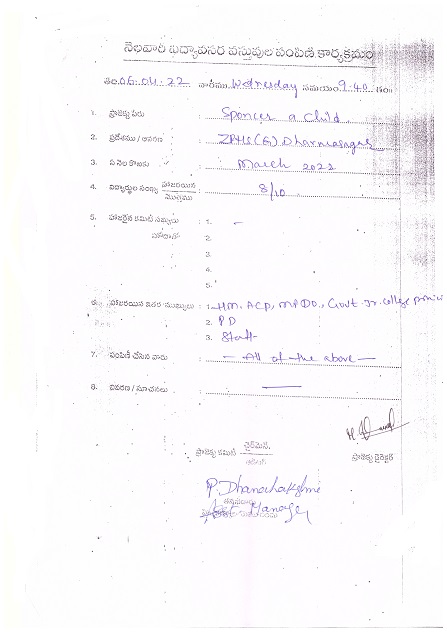 నెలవారి విద్యావసర వస్తువుల పంపిణి కార్యక్రమం
తేది.06.04.22 వారము Wednesday సమయం 9.40 గం॥
1. ప్రాజెక్టు పేరు : Sponcer a Child
2. ప్రదేశము / : ZPHS(G) Dharmasagar
3. ఏ నెల కొరకు : March 2022
4. విద్యార్థుల సంఖ్య హాజరయిన : 8/10
మొత్తము
5. హాజరైన కమిటీ సభ్యులు : 1. -
2.
3.
4.
5.
హాజరయిన ఇతర : 1. HM, ACP, MPDO, Govt Jr. College
2. PD
3. Staff
7. పంపిణీ చేసిన వారు : — All of the above —
8. వివరణ / సూచనలు : —
ప్రాజెక్టు కమిటీ చైర్‌మెన్, ప్రాజెక్టు డైరెక్టర్
P. Dhanalakshmi
Asst Manager